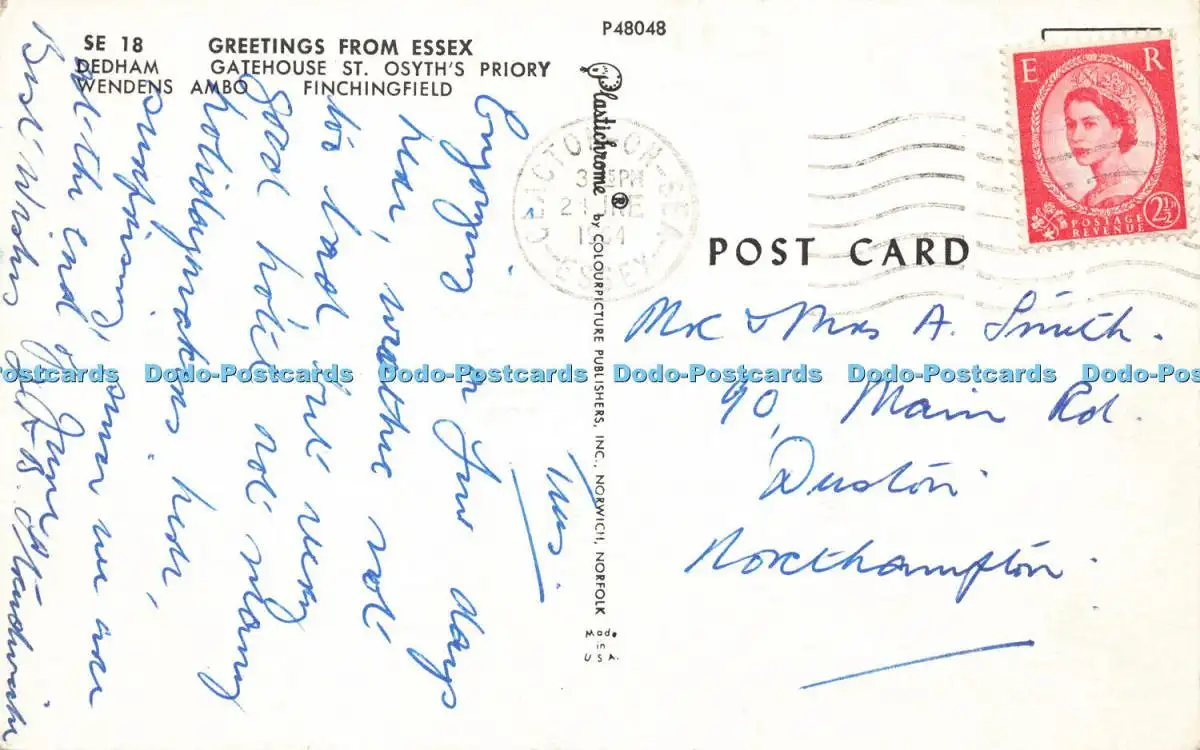 P48048
SE 18 GREETINGS FROM ESSEX
DEDHAM GATEHOUSE ST. OSYTH'S PRIORY
WENDENS AMBO FINCHINGFIELD
Tues.
Enjoying a few days
here, weather not
too bad but very
good hotel not many
holidaymakers here,
surprising, when we are
at the end of June
Best Wishes
Plastichrome ® by COLOURPICTURE PUBLISHERS, INC., NORWICH, NORFOLK
Made in U.S.A.
CLACTON-ON-SEA
3 15 PM
ESSEX
E R
POSTAGE
REVENUE
2½
POST CARD
Mr & Mrs A. Smith.
90, Main Rd.
Duston
Northampton.
Dodo-Postcards Dodo-Postcards Dodo-Postcards Dodo-Postcards Dodo-Postcards Dodo-Postcards